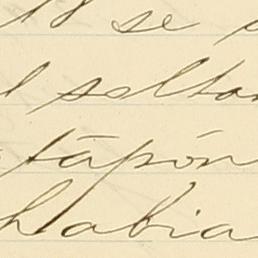 se
l soltar
tapón
habia